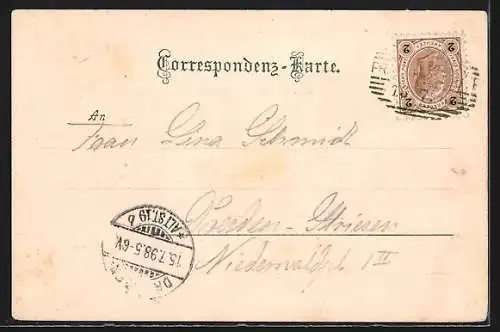 Correspondenz-Karte.
An
Frau Lina Schmidt
Dresden-Striesen
Niederwaldpl. III
ALTST. 19 b
15.7.98.5-6V.
2 2
2 2